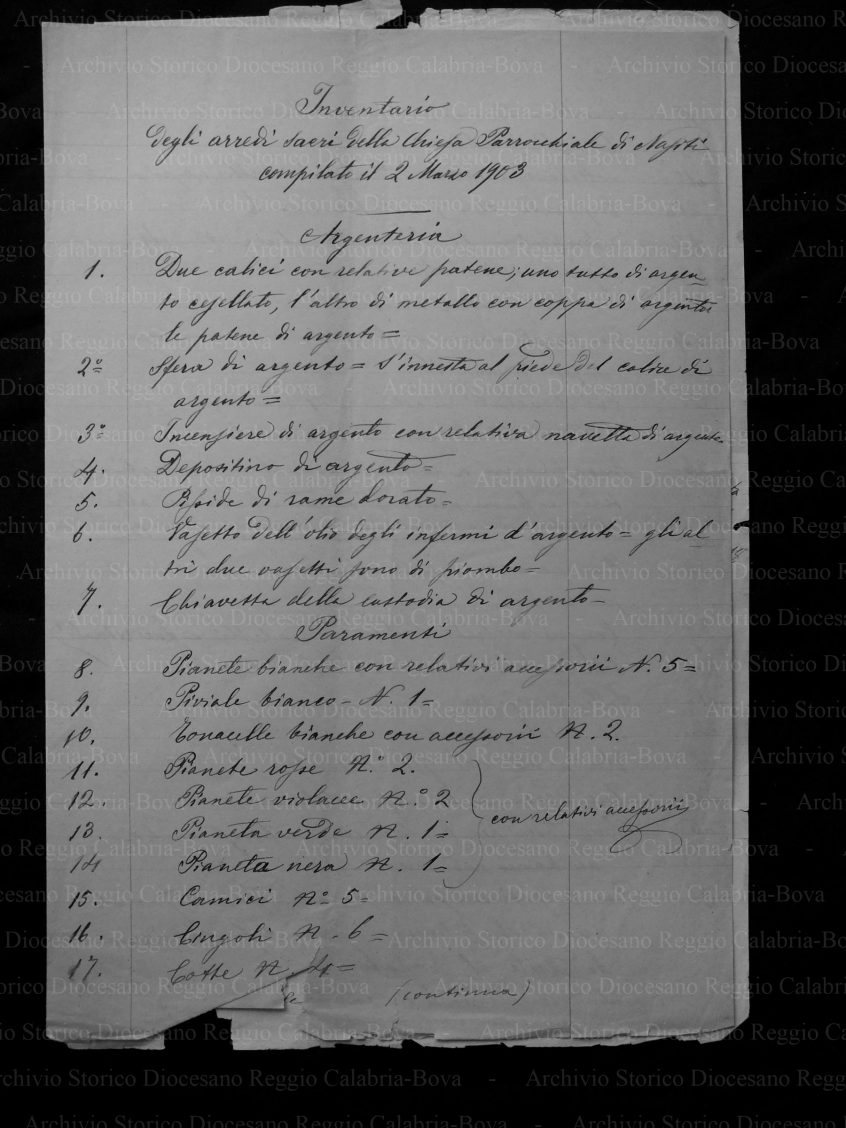 Inventario
degli arredi sacri della Chiesa Parrocchiale di Nasiti
compilato il 2 Marzo 1903
Argenteria
1. Due calici con relative patene; uno tutto di argen_
to cesellato, l'altro di metallo con coppa di argento
le patene di argento =
2º= Sfera di argento = s'innesta al piede del calice di
argento =
3º= Incensiere di argento con relativa navetta di argento
4. Depositino di argento =
5. Pisside di rame dorato =
6. Vasetto dell'olio degli infermi d'argento = gli al_
tri due vasetti sono di piombo =
7. Chiavetta della custodia di argento =
Paramenti
8. Pianete bianche con relativi accessorii N. 5 =
9. Piviale bianco - N. 1 =
10. Tonacelle bianche con accessorii N. 2.
11. Pianete rosse N.º 2.
12. Pianete violacee N.º 2
con relativi accessorii
13. Pianeta verde N. 1 =
14 Pianeta nera N. 1 =
15. Camici Nº 5 =
16. Cingoli N. 6 =
17. Cotte N. 4 =
(continua)
Archivio Storico Diocesano Reggio Calabria-Bova